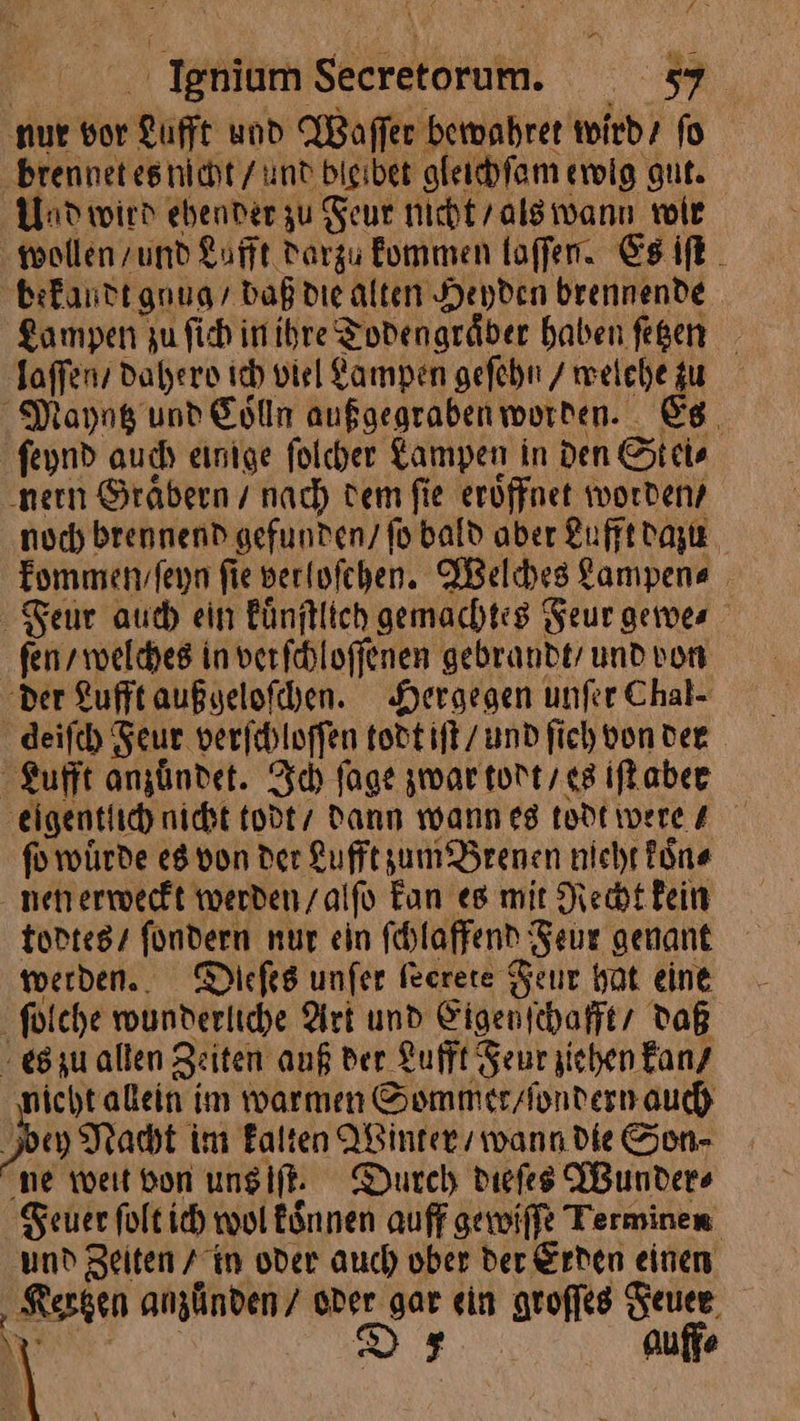 Ignium Secretorum. 57
nur vor Lufft und Waſſer bewahret wird / ſo
brennet es nicht / und bleibet gleichſam ewig gut.
Und wird ehender zu Feur nicht / als wann wir
wollen / und Lufft darzu kommen laſſen. Es iſt
bekandt gnug / daß die alten Heyden brennende
Lampen zu ſich in ihre Todengraͤber haben ſetzen
laſſen / dahero ich viel Lampen geſehn / welche zu
Mayntz und Coͤlln außgegraben worden. Es
ſeynd auch einige ſolcher Lampen in den Stei⸗
nern Graͤbern / nach dem ſie eroͤffnet worden /
noch brennend gefunden / ſo bald aber Lufft dazu
kommen / ſeyn ſie verloſchen. Welches Lampen⸗
Feur auch ein kuͤnſtlich gemachtes Feur gewe⸗
ſen / welches in verſchloſſenen gebrandt / und von
der Lufft außgeloſchen. Hergegen unſer Chal-
deiſch Feur verſchloſſen todt iſt / und ſich von der
Lufft anzuͤndet. Ich ſage zwar todt / es iſt aber
eigentlich nicht todt / dann wann es todt were /
ſo wuͤrde es von der Lufft zum Brenen nicht koͤn⸗
nen erweckt werden / alſo kan es mit Recht kein
todtes / ſondern nur ein ſchlaffend Feur genant
werden. Dieſes unſer ſecrete Feur hat eine
ſolche wunderliche Art und Eigenſchafft / daß
es zu allen Zeiten auß der Lufft Feur ziehen kan /
nicht allein im warmen Sommer / ſondern auch
bey Nacht im kalten Winter / wann die Son-
ne weit von uns iſt. Durch dieſes Wunder⸗
Feuer ſolt ich wol koͤnnen auff gewiſſe Terminen
und Zeiten / in oder auch ober der Erden einen
Kertzen anzuͤnden / oder gar ein groſſes Feuer
D 5 auff⸗